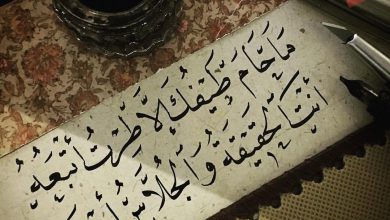 مَا حَامَ طَيفُكَ إلَّا طِرْتُ أتبَعُهُ
أنتَ الحَقِيقَةُ وَالجُلَّاسُ